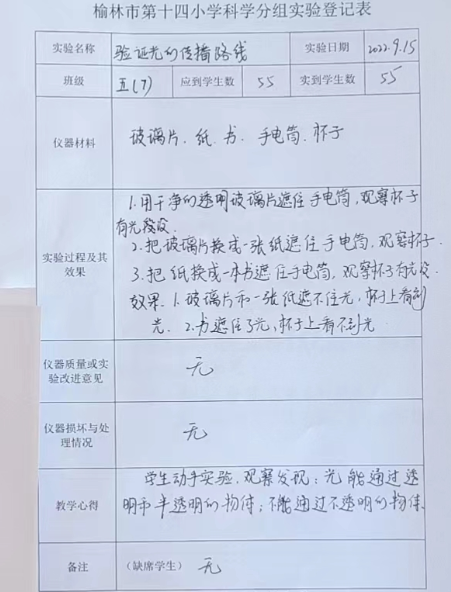 榆林市第十四小学科学分组实验登记表
实验名称 验证光的传播路线 实验日期 2022.9.15
班级 五(7) 应到学生数 55 实到学生数 55
仪器材料 玻璃片、纸、书、手电筒、杯子
实验过程及其效果
1.用干净的透明玻璃片遮住手电筒,观察杯子
有光没没.
2.把玻璃片换成一张纸遮住手电筒,观察杯子.
3.把纸换成一本书遮住手电筒,观察杯子有光没
效果.1.玻璃片和一张纸遮不住光,杯子上看到
光.2.书遮住了光,杯子上看不到光
仪器质量或实验改进意见 无
仪器损坏与处理情况 无
教学心得
学生动手实验,观察发现:光能通过透
明和半透明的物体;不能通过不透明的物体.
备注 (缺席学生) 无